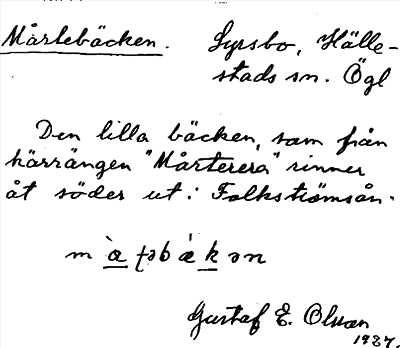 Mårtebäcken. Lyrsbo, Hälle-
stads sn. Ögl
Den lilla bäcken, som från
kärrängen "Mårterera" rinner
åt söder ut i Folkströmsån.
Gustaf E. Olsson
1937.